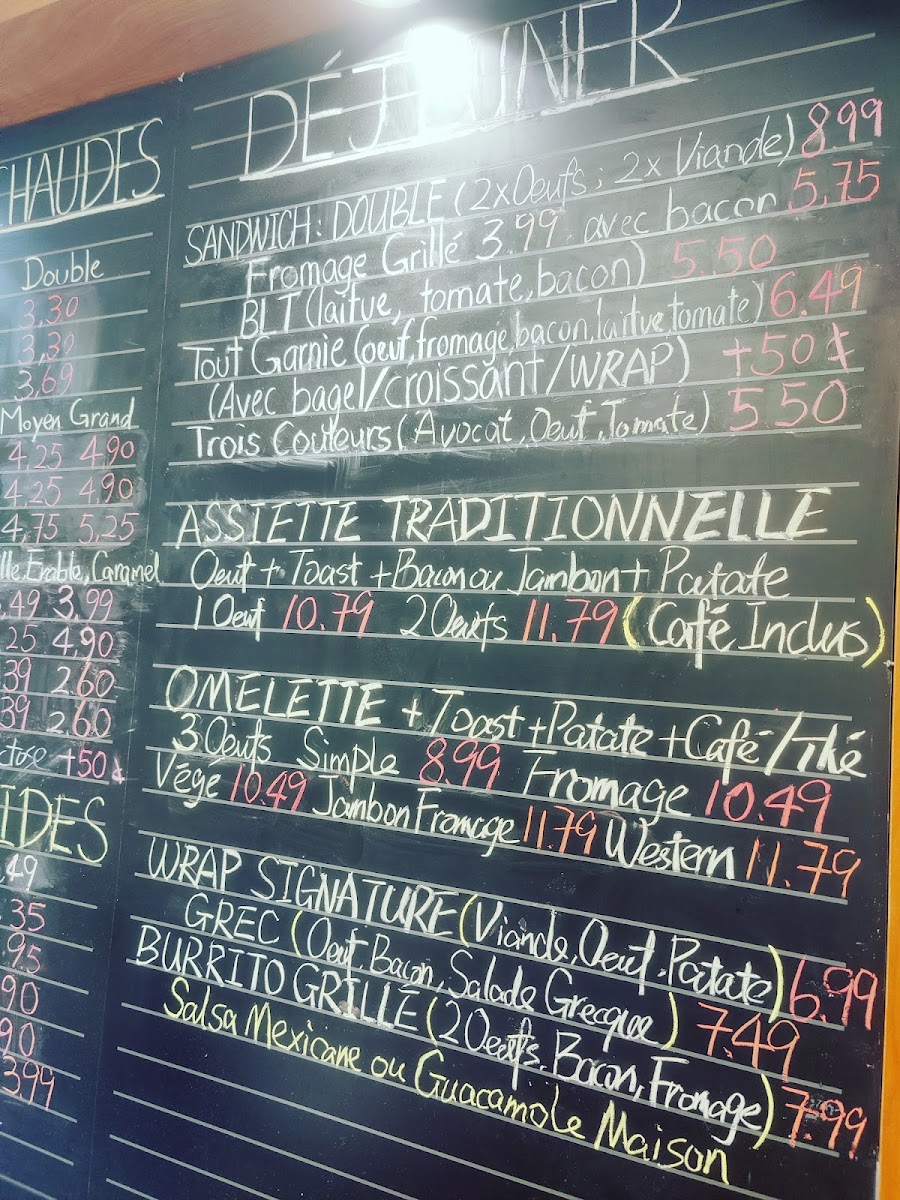 CHAUDES
Double
3,30
3,30
3,69
Moyen Grand
4,25 4,90
4,25 4,90
4,75 5,25
Erable, Caramel
49 3,99
25 4,90
39 2,60
39 2,60
+50¢
IDES
.49
35
.95
90
90
3,99
DÉJEUNER
SANDWICH: DOUBLE (2xOeufs ; 2x Viande) 8.99
Fromage Grillé 3.99 avec bacon 5,75
BLT (laitue, tomate, bacon) 5.50
Tout Garnie (oeuf, fromage, bacon, laitue, tomate) 6.49
(Avec bagel/croissant/WRAP) +50¢
Trois Couleurs (Avocat, Oeuf, Tomate) 5.50
ASSIETTE TRADITIONNELLE
Oeuf + Toast + Bacon ou Jambon + Patate
1 Oeuf 10.79 2 Oeufs 11.79 (Café Inclus)
OMELETTE + Toast + Patate + Café/Thé
3 Oeufs Simple 8.99 Fromage 10.49
Végé 10.49 Jambon Fromage 11.79 Western 11.79
WRAP SIGNATURE (Viande, Oeuf, Patate) 6.99
GREC (Oeuf, Bacon, Salade Grecque) 7.49
BURRITO GRILLÉ (2 Oeufs, Bacon, Fromage) 7.99
Salsa Mexicane ou Guacamole Maison